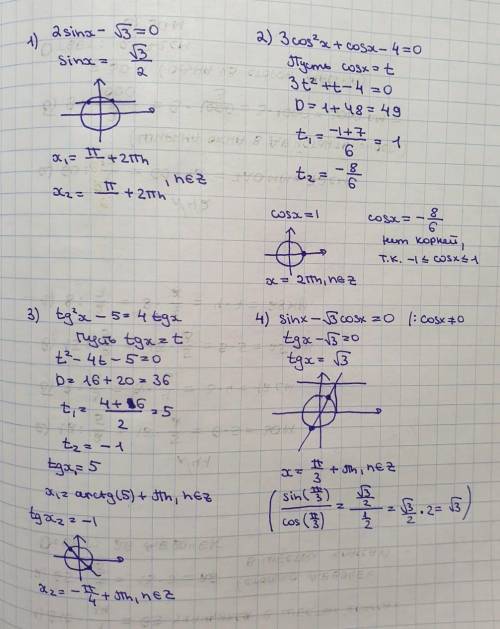 1) 2sinx - √3 = 0
sinx = √3/2
x₁ = π/ + 2πn
x₂ = π/ + 2πn, n∈Z
2) 3cos²x + cosx - 4 = 0
Пусть cosx = t
3t² + t - 4 = 0
D = 1 + 48 = 49
t₁ = (-1+7)/6 = 1
t₂ = -8/6
cosx = 1
x = 2πn, n∈Z
cosx = -8/6
нет корней,
т.к. -1 ≤ cosx ≤ 1
3) tg²x - 5 = 4 tgx
Пусть tgx = t
t² - 4t - 5 = 0
D = 16 + 20 = 36
t₁ = (4+6)/2 = 5
t₂ = -1
tgx₁ = 5
x₁ = arctg(5) + πn, n∈Z
tgx₂ = -1
x₂ = -π/4 + πn, n∈Z
4) sinx - √3cosx = 0 |: cosx ≠ 0
tgx - √3 = 0
tgx = √3
x = π/3 + πn, n∈Z
(sin(π/3)/cos(π/3) = (√3/2)/(1/2) = √3/2 · 2 = √3)